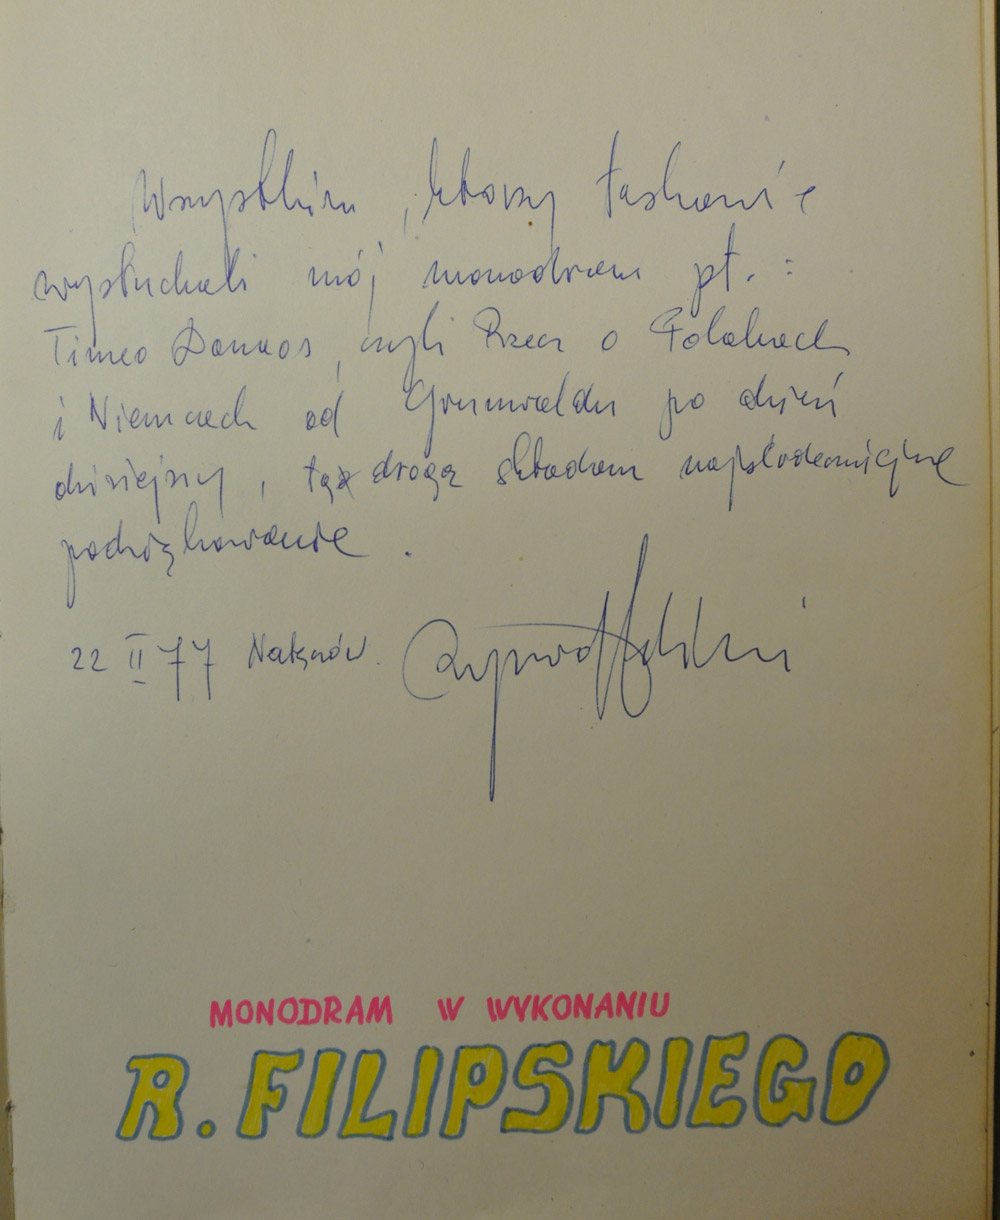 Wszystkim, którzy łaskawie
wysłuchali mój monodram pt. :
Timeo Danaos, czyli Rzecz o Polakach
i Niemcach od Grunwaldu po dzień
dzisiejszy, tą drogą składam najserdeczniejsze
podziękowanie.
22 II 77 Natęzów. Ryszard Filipski
MONODRAM W WYKONANIU
R. FILIPSKIEGO